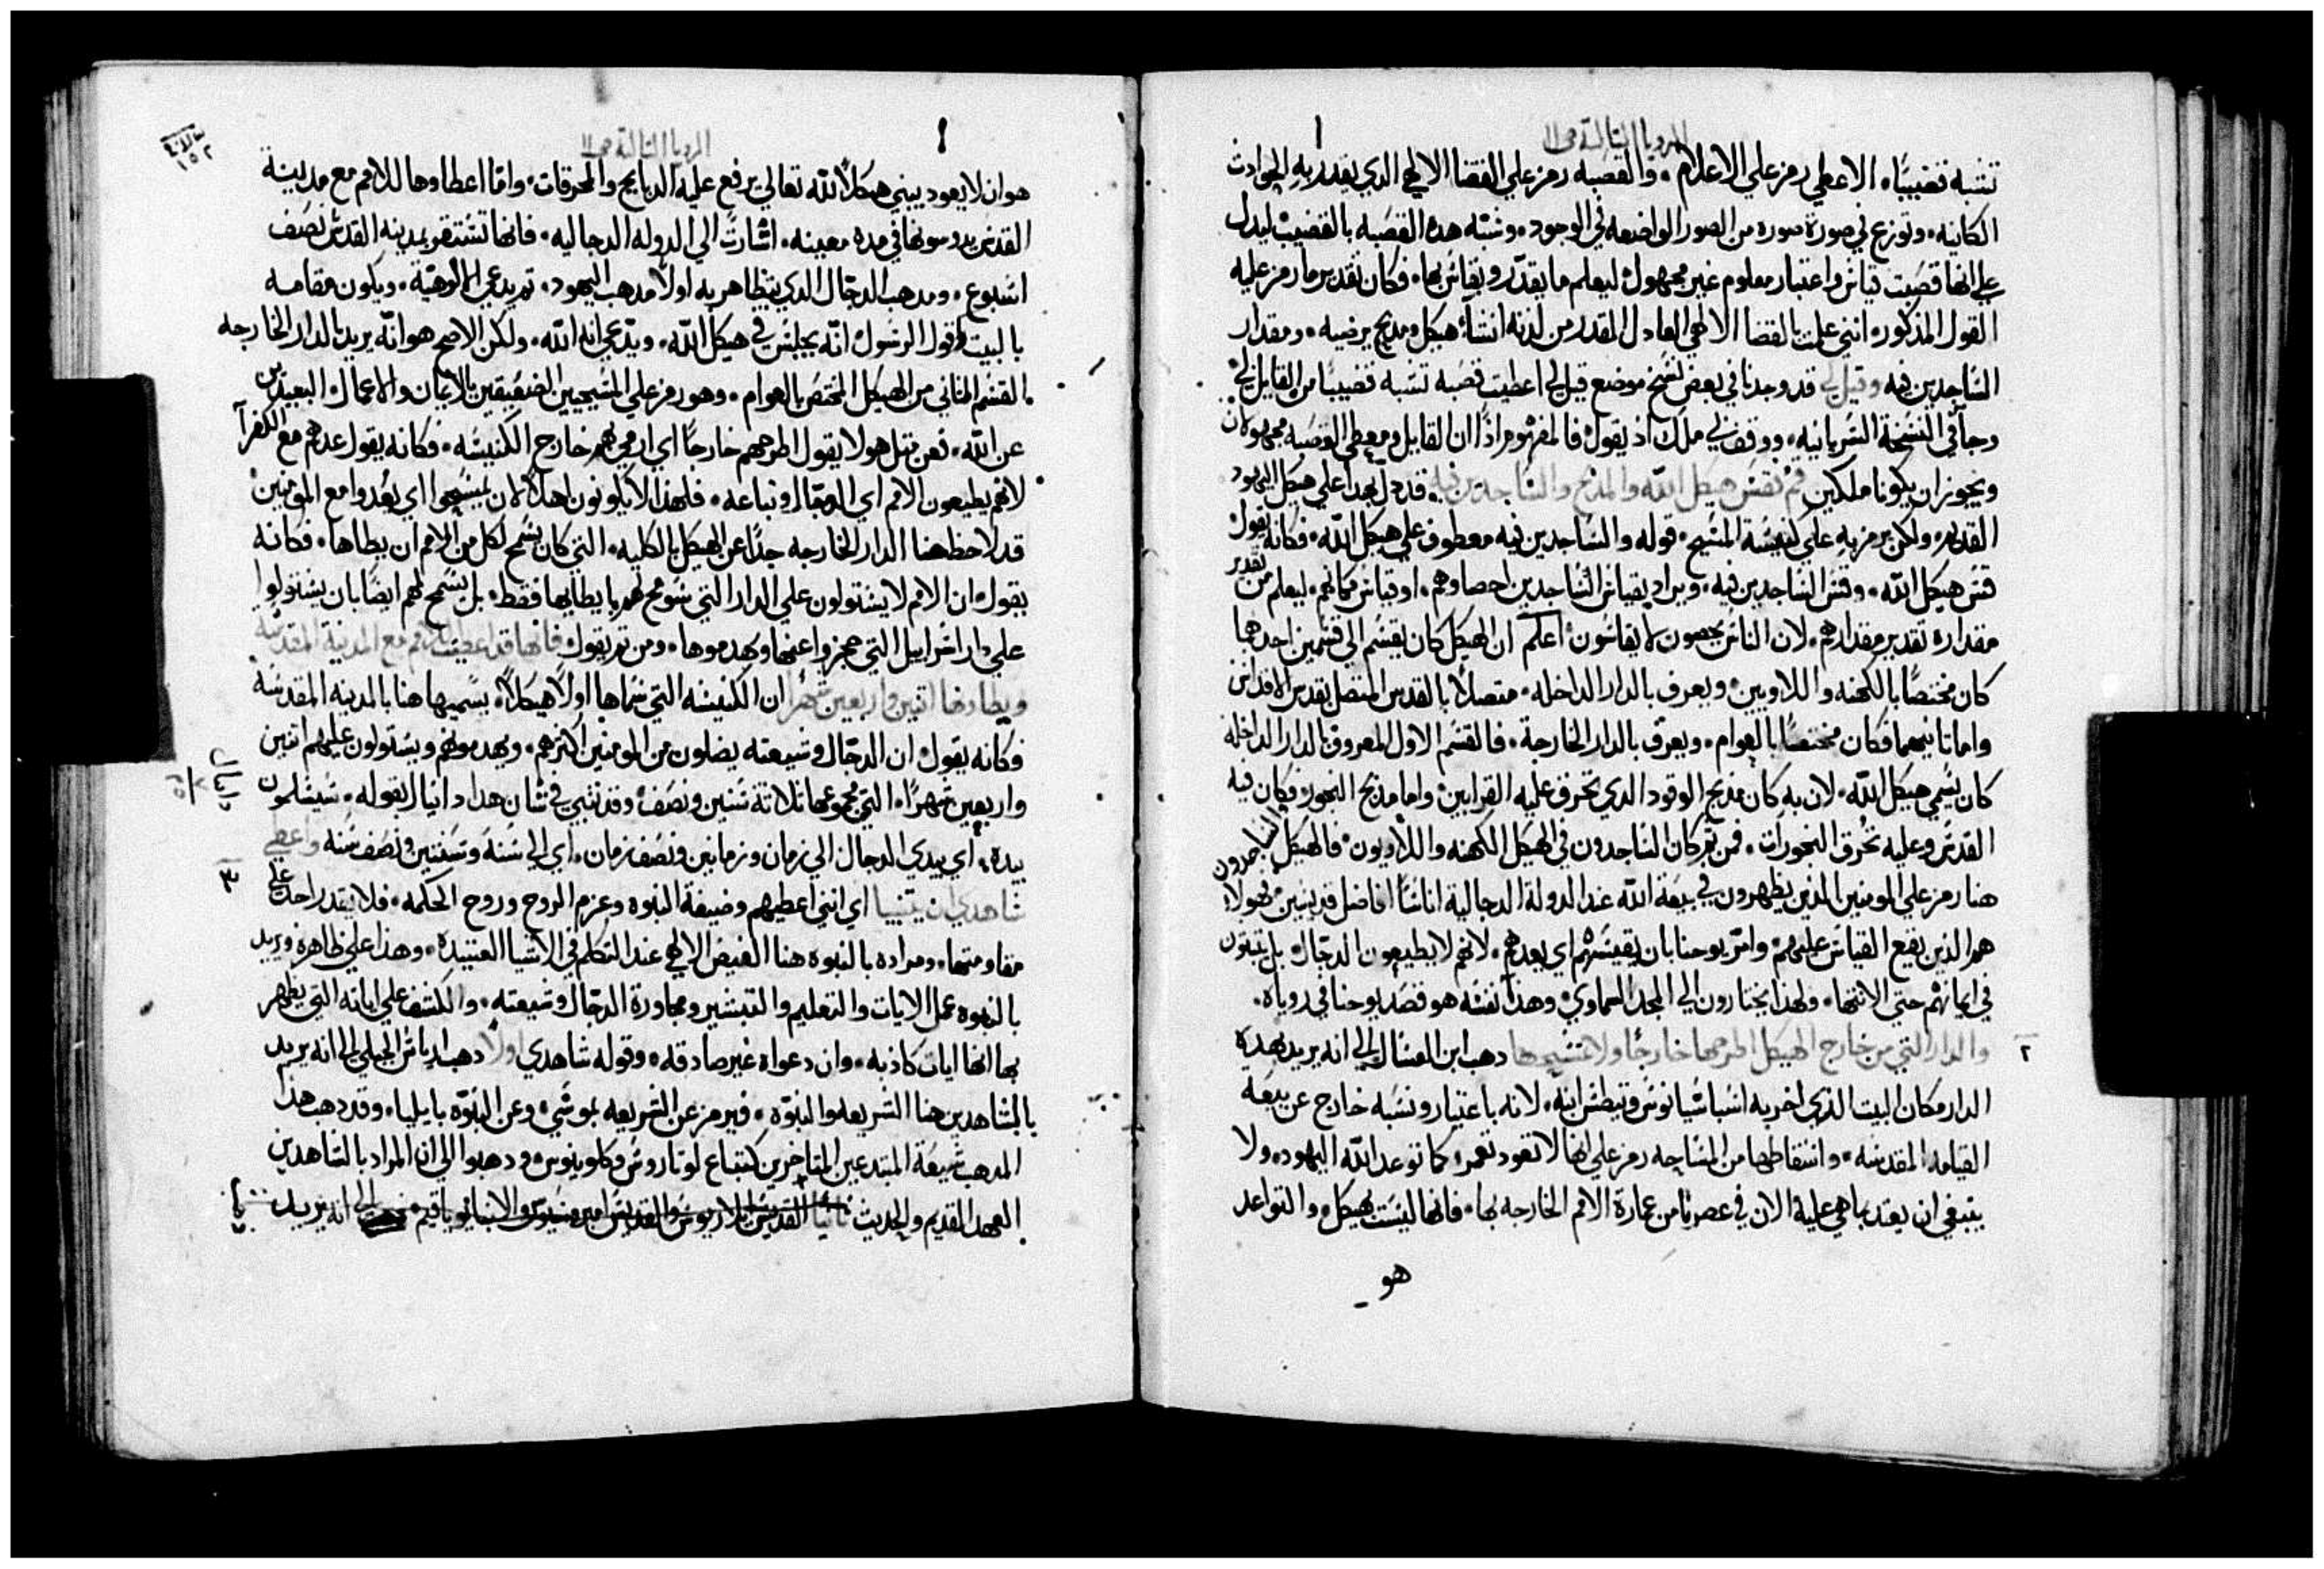 الرويا الثالثة ص ١١
تشبه قضيبًا. الاعطي رمز علي الاعلام. والقصبه رمز علي القضا الالهي الدي يقدر به الحوادث
الكاينه. وتوزع في صورة صوره من الصور الواضعه في الوجود. وشبّه هده القصبه بالقضيب ليدل
علي انها قصبت قياس واعتبار معلوم غير مجهول ليعلم ما يقدّر ويقاس بها. فكان تقدير ما رمز عليه
القول المذكور. انني علمت بالقضا الالهي العادل المقدر من لدنه انشأ هيكل ومدبح يرضيه. ومقدار
الساجدين فيه وقيل لي قد وجدنا في بعض نسخ موضع قيل لي اعطيت قصبه تشبه قضيبًا من القايل لي
وجآ في النسخة السريانيه. ووقف لي ملك اذ يقول فالمفهوم اذًا ان القايل ومعطي القصبه مجهولان
ويجوز ان يكونا ملكين قم فقس هيكل الله والمدبح والساجدين فيه. قد دل بهدا علي هيكل اليهود
القديم. ولكن يرمز به علي كنيسة المسيح. قوله والساجدين فيه معطوف علي هيكل الله. فكانه يقول
قس هيكل الله. وقس الساجدين فيه. ويراد بقياس الساجدين احصاوهم. او قياس مكانهم. ليعلم من تقدير
مقداره تقدير مقدارهم. لان الناس يحصون لا يقاسون. اعلم ان الهيكل كان يقسم الي قسمين احدهما
كان مختصًا بالكهنه واللاويين. ويعرف بالدار الداخله. متصلاً بالقدس المتصل بقدس الاقداس
واما ثانيهما فكان مختصًا بالعوام. ويعرف بالدار الخارجة. فالقسم الاول المعروف بالدار الداخله
كان يسمي هيكل الله. لان به كان مدبح الوقود الدي تحرق عليه القرابين. واما مدبح البخور. فكان فيه
القدس وعليه تحرق البخورات. فمن ثم كان الساجدون في الهيكل الكهنه واللاويون. فالهيكل والساجدون
هنا رمز علي المومنين الذين يظهرون في بيعة الله عند الدولة الدجالية اناسًا افاضل قديسين فهولا
هم الذين يقع القياس عليهم. وامر يوحنا بان يقيسهم اي يعدهم. لانهم لا يطيعون الدجّال. بل يثبتون
في ايمانهم حتي الانتها. ولهذا يختارون الي المجد السماوي. وهدا نفسه هو قصد يوحنا في روياه.
٢ والدار التي من خارج الهيكل اطرحها خارجًا ولا تمسحها دهب ابن العسال الي انه يريد بهده
الدار مكان البيت الذي اخربه اسباشيانوس وتيطس ابنه. لانه باعتبار ونسبه خارج عن بيعة
القيامه المقدسه. واسقاطها من المساحه رمز علي انها لا تعود تعمر. كما توعد الله اليهود. ولا
ينبغي ان يعتد بما هي عليه الان في عصرنا من عمارة الامم الخارجه بها. فانها ليست بهيكل. والتواعد
هو
الرويا الثالثة ص ١١
١٥٢
هو ان لا يعود يبني هيكلاً لله تعالي يرفع عليه الدبايح والمحرقات. وامّا اعطاوها للامم مع مدينة
القدس يدوسونها في مده معينه. اشارتً الي الدوله الدجاليه. فانها تستقر بمدينه القدس نصف
اسبوع. ومدهب الدجّال الدي يتظاهر به اولاً مدهب اليهود. ثم يدعي الالوهيّة. ويكون مقامه
بالبيت لقول الرسول انّه يجلس في هيكل الله. ويدّعي انه الله. ولكن الاصح هو انّه يريد بالدار الخارجه
القسم الثاني من الهيكل المختص بالعوام. وهو رمز علي المسيحيين الضعيفين بالايمان والاعمال البعيدين
عن الله. فعن مثل هولا يقول اطرحهم خارجًا اي ارمي بهم خارج الكنيسه. فكانه يقول عدهم مع الكفرآ
لانهم يطيعون الامم اي الدجّال وتباعه. فلهذا لا يكونون اهلاً لان يمسحوا اي يعُدوا مع المومنين
قد لاحظ هنا الدار الخارجه جدًا عن الهيكل بالكليه. التي كان يسمح لكل من الامم ان يطاها. فكانه
يقول ان الامم لا يستولون علي الدار التي سومح لهم بايطايها فقط. بل يسمح لهم ايضًا بان يستولوا
علي دار اسراييل التي حجزوا عنها ويهدموها. ومن ثم يقول فانها قد اعطيت للامم مع المدينة المقدسه
ويطاونها اثنين واربعين شهرًا ان الكنيسه التي سماها اولاً هيكلاً. يسميها هنا بالمدينه المقدسه
فكانه يقول ان الدجّال وشيعته يضلون من المومنين اكثرهم. ويهدمونهم ويستولون عليهم اثنين
واربعين شهرًا. التي مجموعها ثلاثة سنين ونصف. وقد تنبي في شان هدا دانيال بقوله. سيسلمون
دانيال
بيده. اي بيدي الدجال الي زمان وزمانين ونصف زمان. اي الي سنة وسنتين ونصف سنه واعطي
٣ شاهدي ان يتنبيا اي انني اعطيهم وضيفة النبوه وعزم الروح وروح الحكمه. فلا يقدر احد علي
مقاومتها. ومراده بالنبوه هنا الفيض الالهي عند التكلم في الاشيا العتيدة. وهذا علي ظاهره ويريد
بالنبوه عمل الايات والتعليم والتبشير ومجاورة الدجّال وشيعته. والكشف علي اياته التي يظهر
بها انها ايات كاذبه. وان دعواه غير صادقه. وقوله شاهدي اولاً دهب الياس الجبلي الي انه يريد
بالشاهدين هنا الشريعه والنبوّه. فيرمز عن الشريعه بموسي. وعن النبوّه بايليا. وقد دهب هذا
المدهب شيعة المبتدعين المتاخرين كتباع لوتاروس وكلوينوس. ودهبوا الي ان المراد بالشاهدين
العهد القديم والحديث ثانيًا القديس ايلاريوس والقديس امبروسيوس والانبا يواقيم الي انه يريد